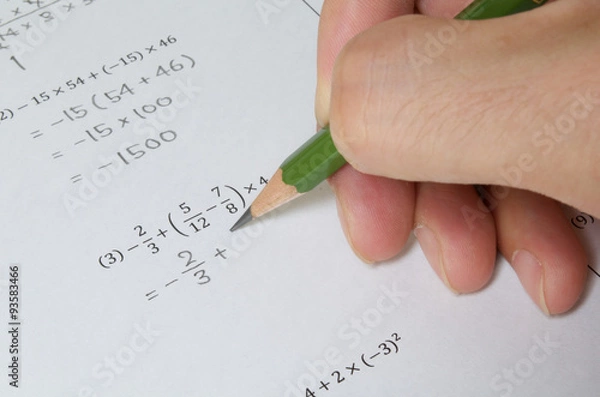 1
2) − 15 × 54 + (−15) × 46
= −15 (54 + 46)
= −15 × 100
= −1500
(3) − 2/3 + (5/12 − 7/8) × 4
= − 2/3 +
4 + 2 × (−3)²
(9)
Adobe Stock | #93583466